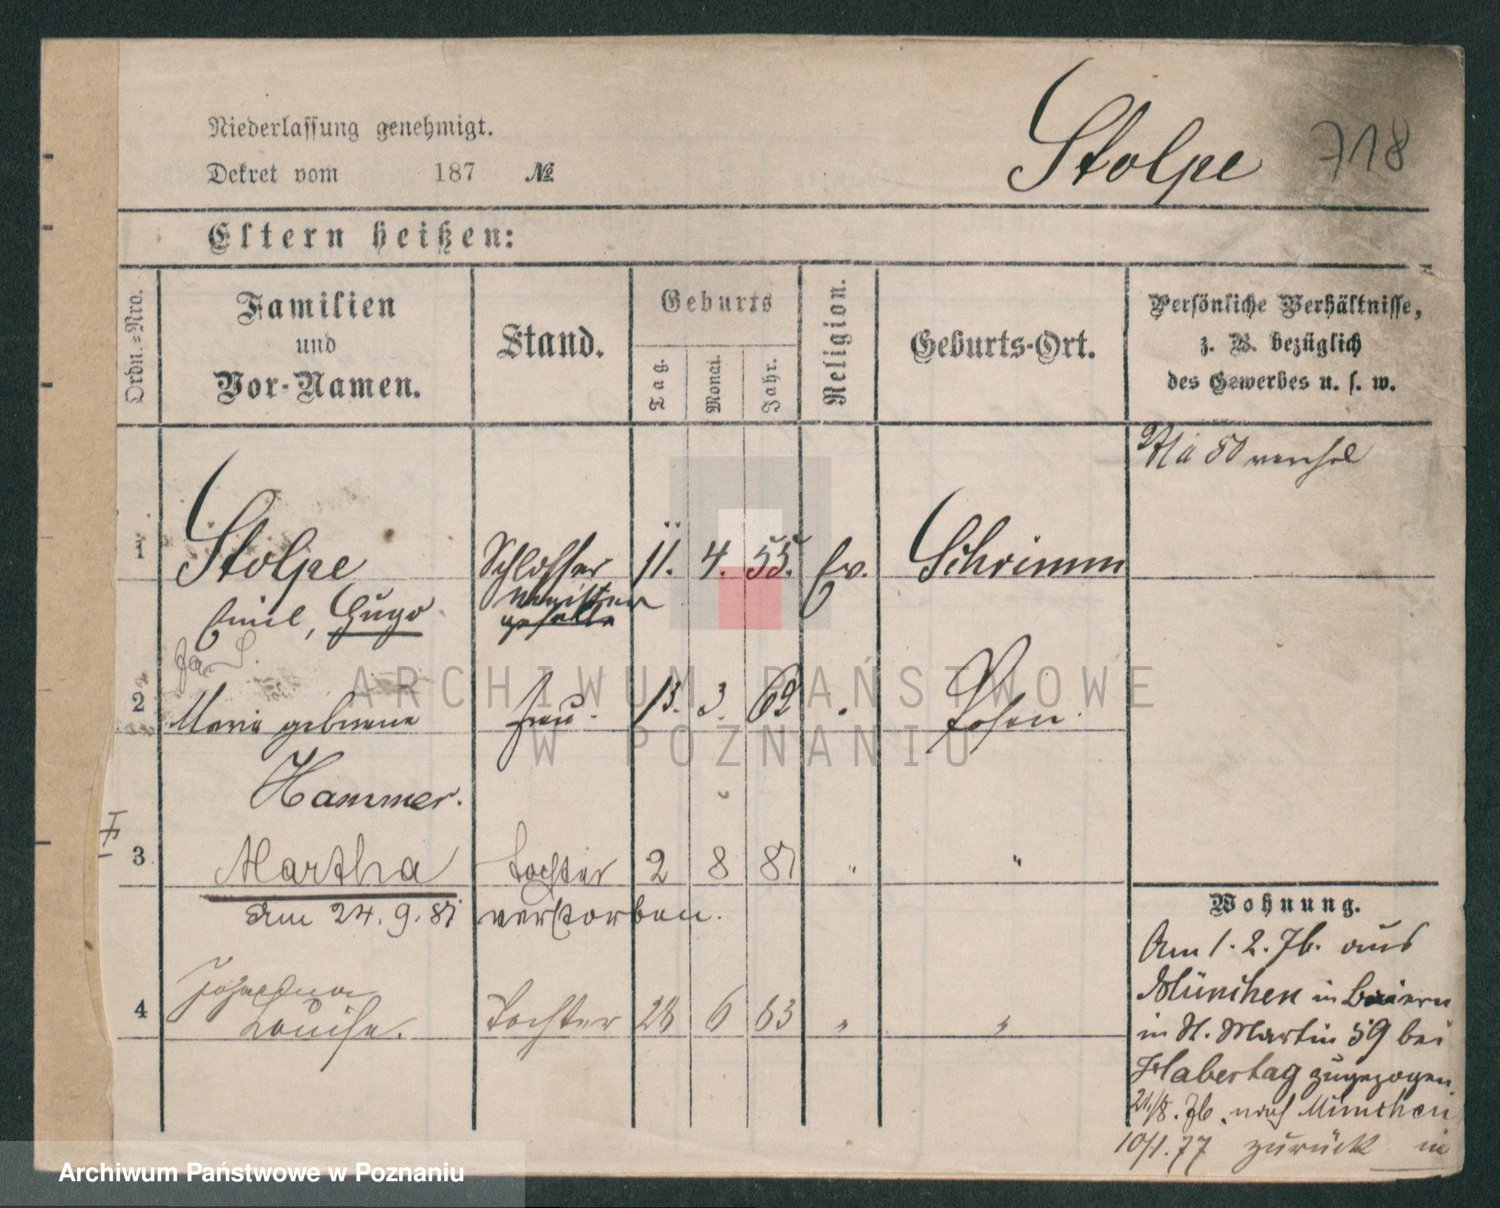 Niederlassung genehmigt.
Dekret vom 187 №
Stolpe 718
Eltern heißen:
Ordn.-Nro.
Familien
und
Vor-Namen.
Stand.
Geburts
Tag.
Monat.
Jahr.
Religion.
Geburts-Ort.
Persönliche Verhältnisse,
z. B. bezüglich
des Gewerbes u. s. w.
1 Stolpe Schlosser 11. 4. 55. Ev. Schrimm
Emil, Hugo
2 Marie geborene Frau. 13. 3. 62 Posen.
Hammer.
3 Martha Tochter 2 8 81 " "
Am 24. 9. 81 verstorben.
4 Johanna
Louise. Tochter 28 6 83 " "
Wohnung.
Am 1. 2. 76. aus
München in Baiern
in St. Martin 59 bei
Habertag zugezogen.
21/8. 76. nach München
10/1. 77 zurück in
ARCHIWUM PAŃSTWOWE
W POZNANIU
Archiwum Państwowe w Poznaniu